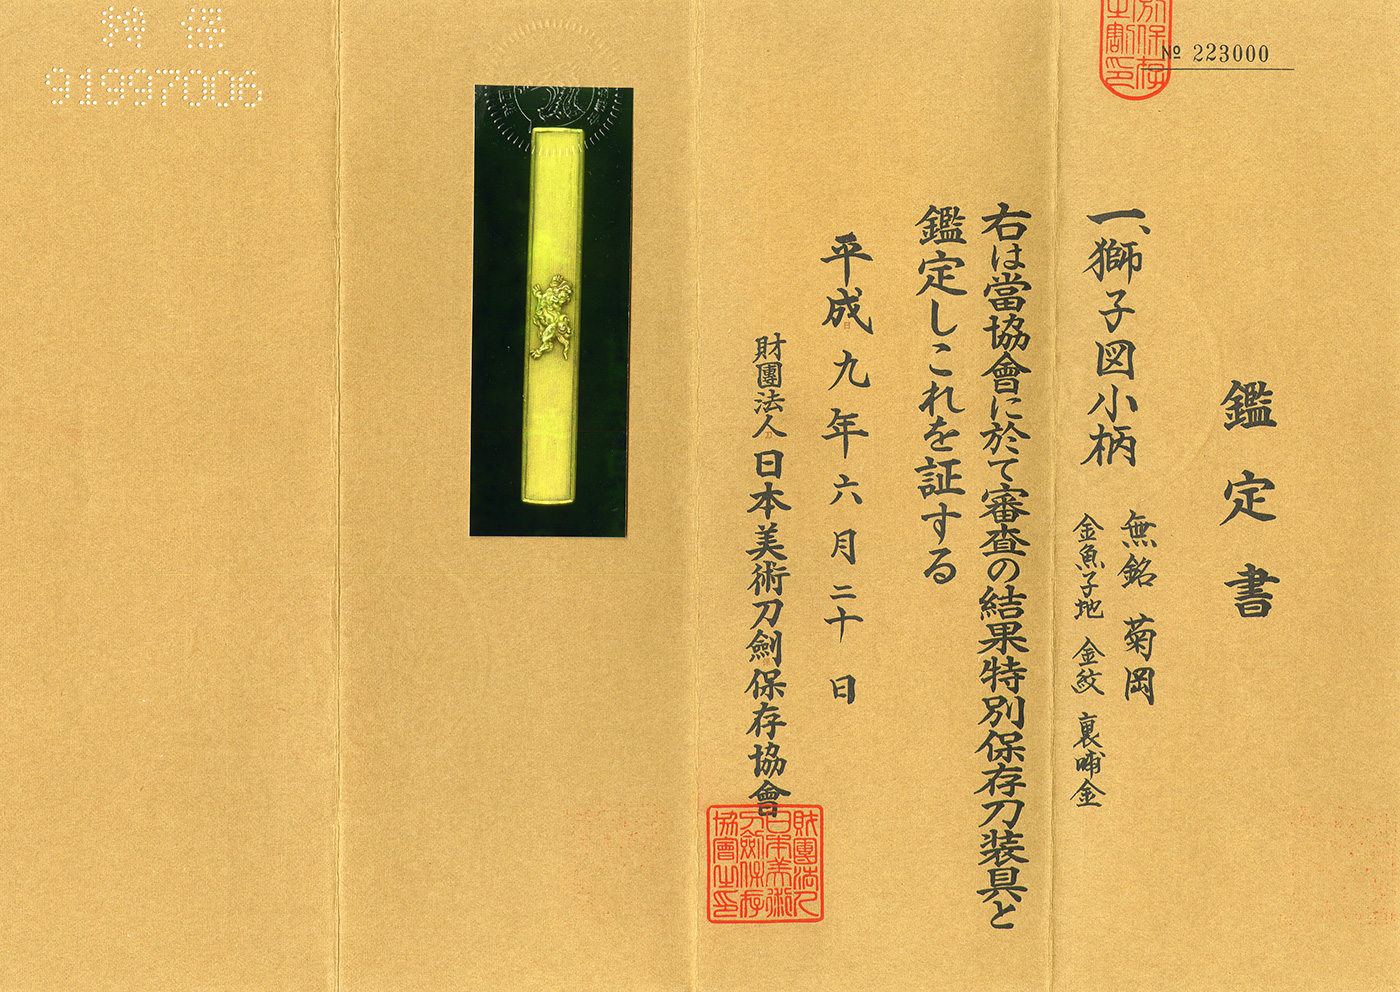 鑑定書
№ 223000
一、獅子図小柄
無銘 菊岡
金魚子地 金紋 裏哺金
右は當協會に於て審査の結果特別保存刀装具と
鑑定しこれを証する
平成九年六月二十日
財團法人日本美術刀劍保存協會
財團法人
日本美術
刀劍保存
協會之印
特保
91997006